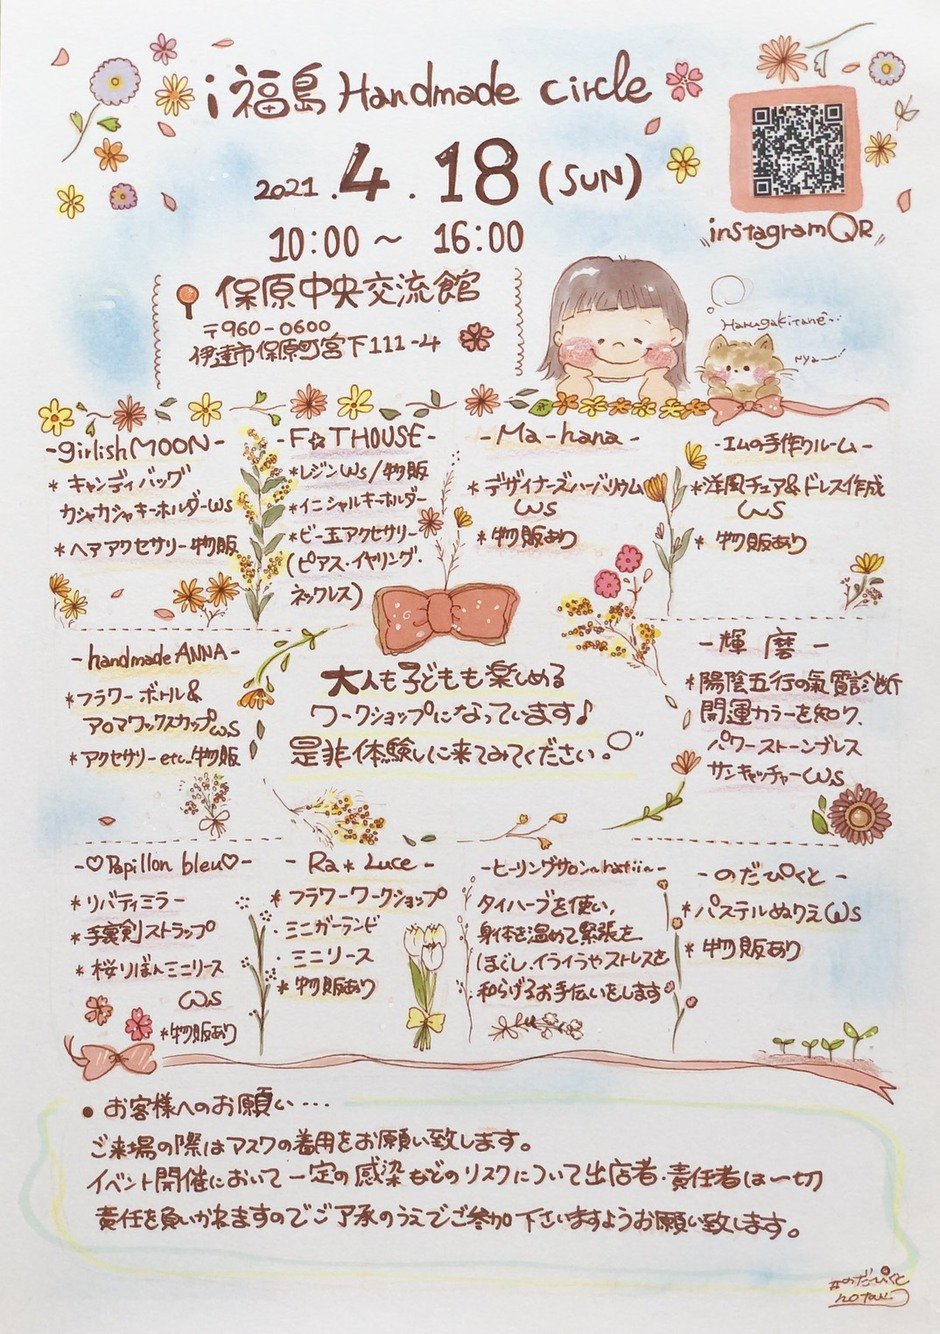 i 福島 Handmade circle
2021.4.18(SUN)
10:00〜16:00
instagram QR
保原中央交流館
〒960-0600
伊達市保原町宮下111-4
Harugakitane
nya
-girlish MOON-
*キャンディバッグ
カシャカシャキーホルダーws
*ヘアアクセサリー物販
-F☆T HOUSE-
*レジンws/物販
*イニシャルキーホルダー
*ビー玉アクセサリー
(ピアス・イヤリング・
ネックレス)
-Ma-hana-
*デザイナーズハーバリウム
ws
*物販あり
-エムの手作りルーム-
*洋風チュア&ドレス作成
ws
*物販あり
-handmade ANNA-
*フラワーボトル&
アロマワックスカップws
*アクセサリーetc..物販
大人も子どもも楽しめる
ワークショップになっています♪
是非体験しに来てみてください。
-輝磨-
*陽陰五行の氣質診断
開運カラーを知り、
パワーストーンブレス
サンキャッチャーws
-♡Papillon bleu♡-
*リバティミラー
*手裏剣ストラップ
*桜りぼんミニリース
ws
*物販あり
-Ra*Luce-
*フラワーワークショップ
ミニガーランド
ミニリース
*物販あり
-ヒーリングサロン〜
タイハーブを使い、
身体を温めて緊張を
ほぐし、イライラやストレスを
和らげるお手伝いをします
-のだぴくと-
*パステルぬりえws
*物販あり
●お客様へのお願い…
ご来場の際はマスクの着用をお願い致します。
イベント開催において一定の感染などのリスクについて出店者・責任者は一切
責任を負いかねますのでご了承のうえでご参加下さいますようお願い致します。
#のだぴくと